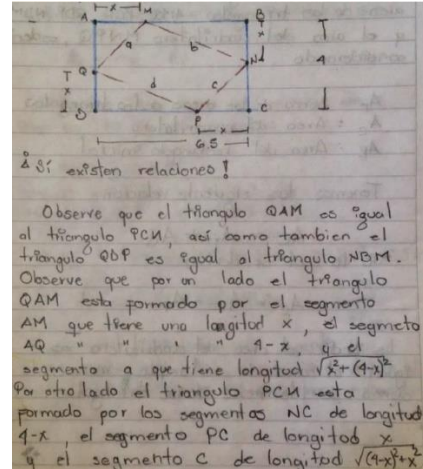 x
A M B
a b
Q N
T x 4
x d c
D P C
x
6.5
¡Sí existen relaciones!
Observe que el triangulo QAM es igual
al triangulo PCN, así como tambien el
triangulo QDP es igual al triangulo NBM.
Observe que por un lado el triangulo
QAM esta formado por el segmento
AM que tiene una longitud x, el segmeto
AQ " " " " 4-x, y el
segmento a que tiene longitud √x²+(4-x)²
Por otro lado el triangulo PCN esta
formado por los segmentos NC de longitud
4-x, el segmento PC de longitud x
y el segmento C de longitud √(4-x)²+x²